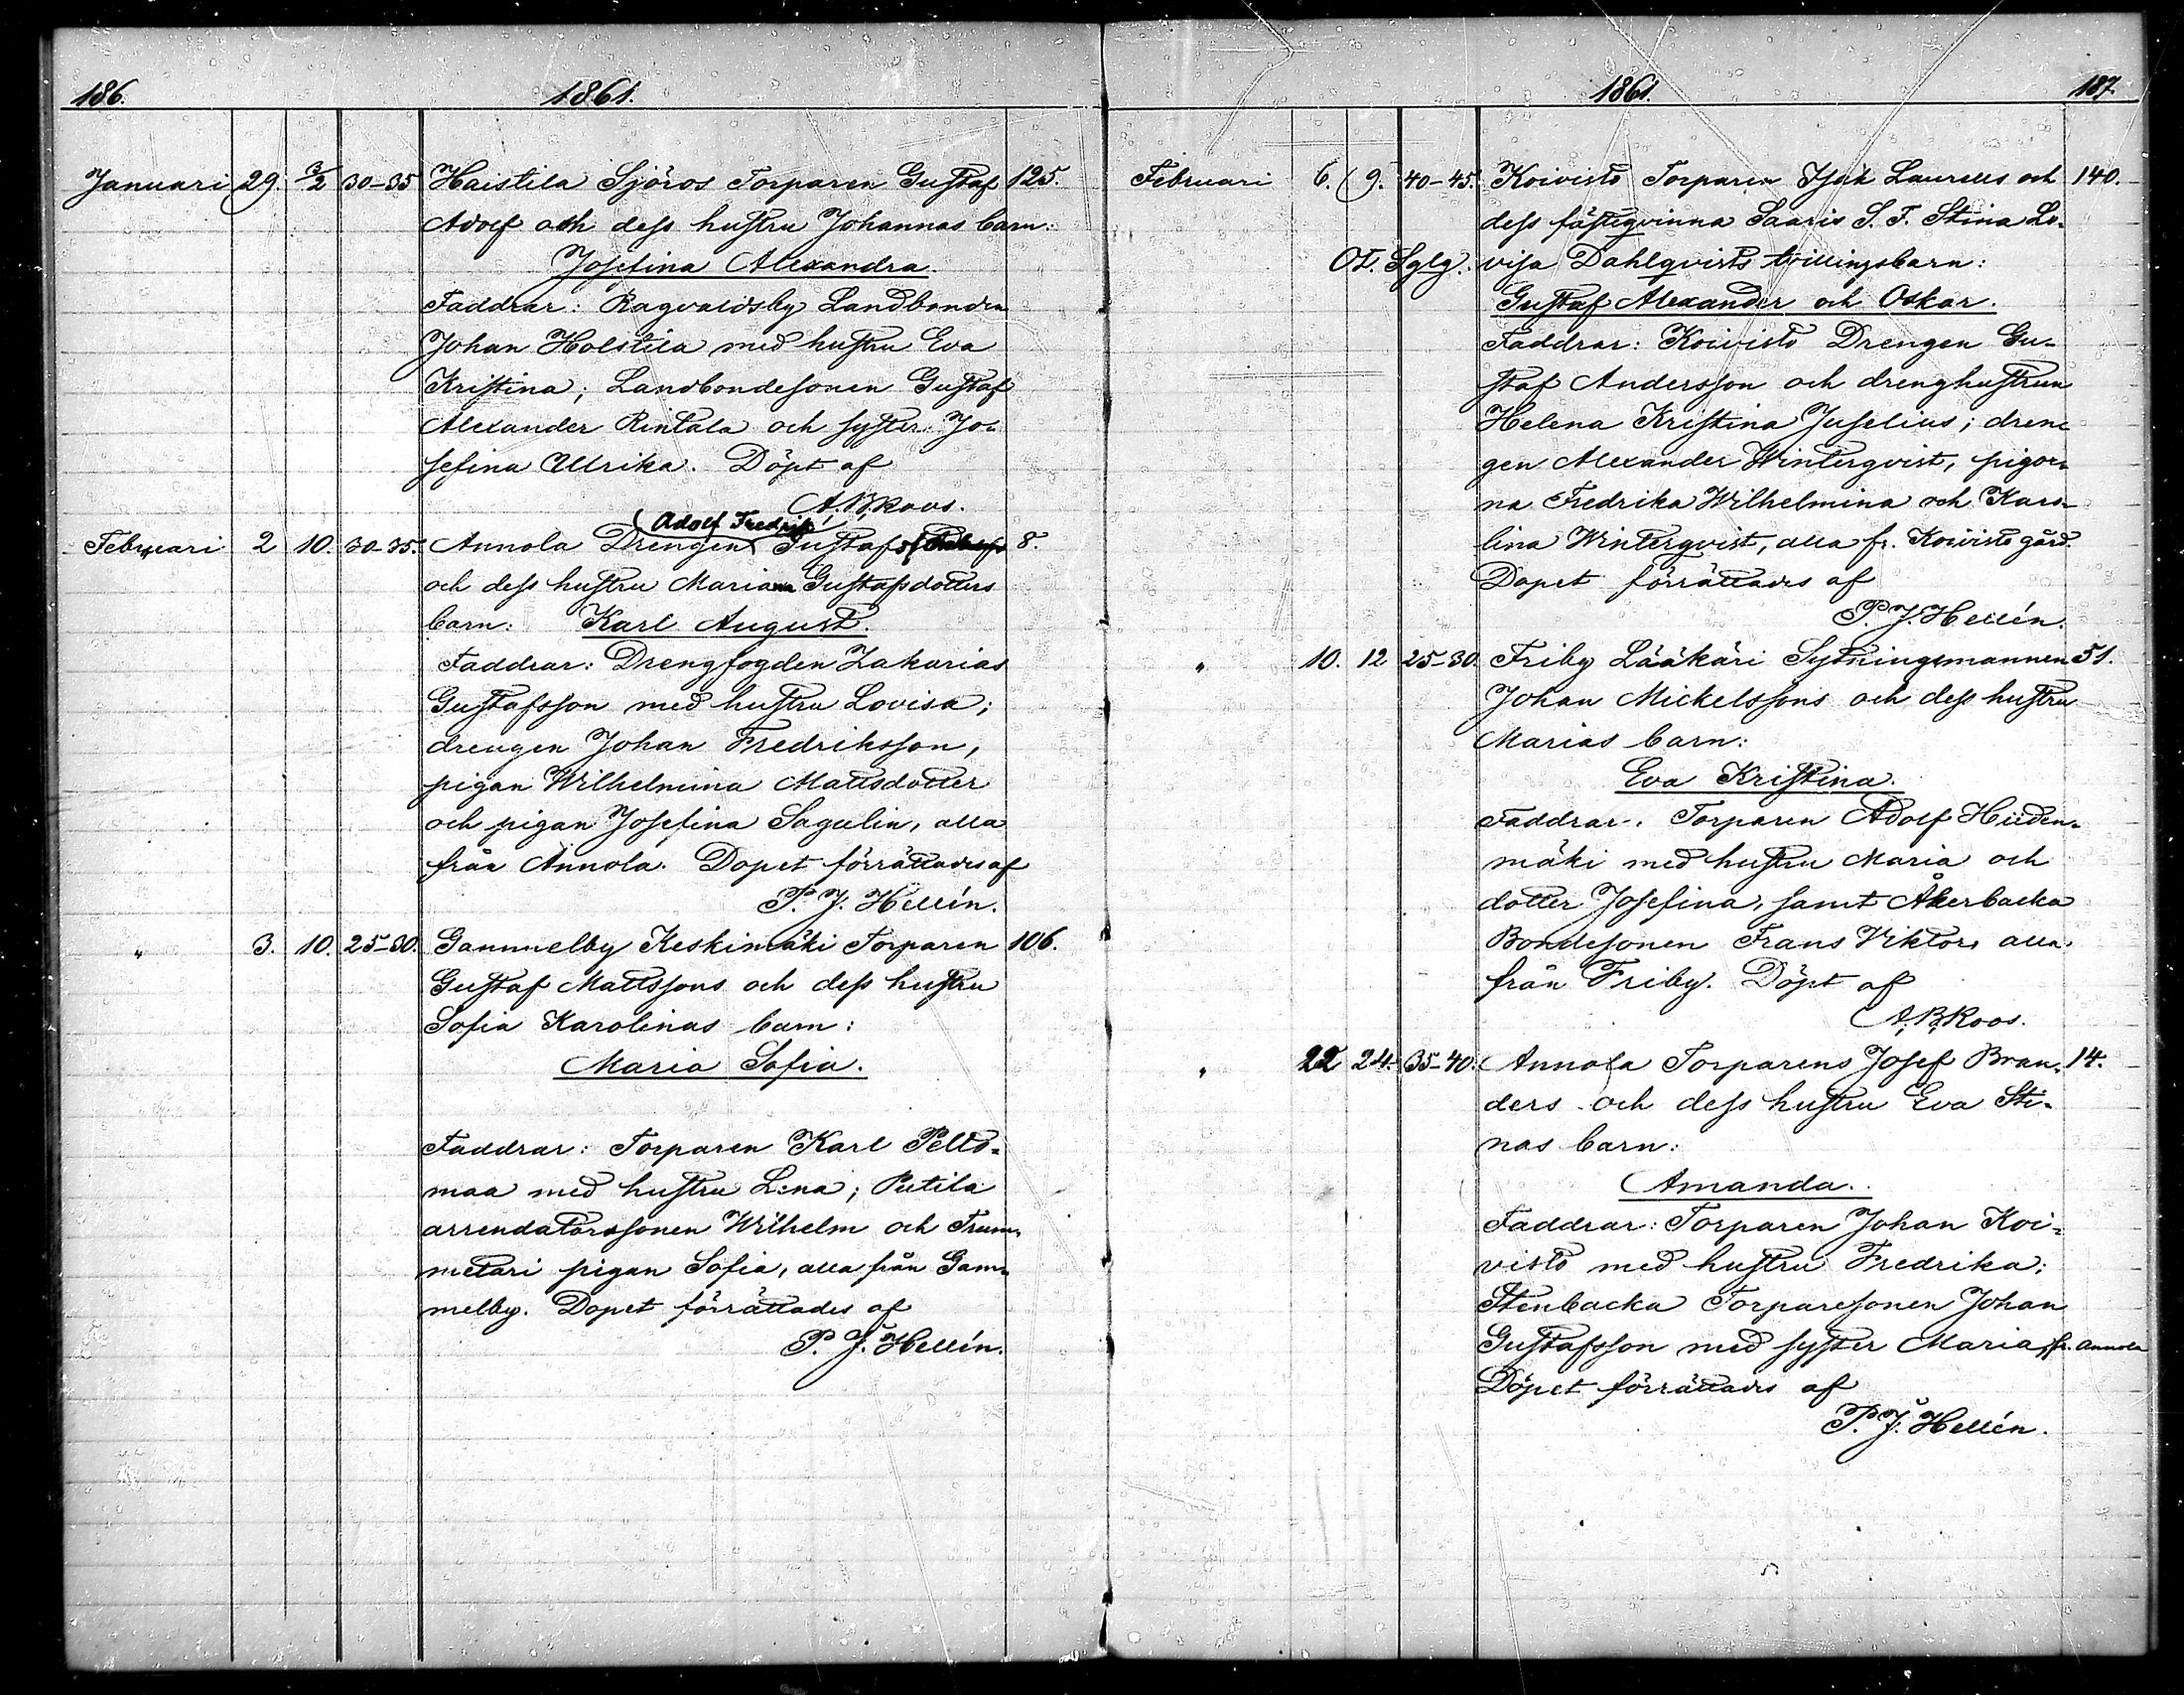 186.
1861.
Januari 29. 3/2 30-35 Haistila Sjöros Torparen Gustaf 125.
Adolf och dess hustru Johannas barn:
Josefina Alexandra.
Faddrar: Ragvaldsby Landbonden
Johan Holstila med hustru Eva
Kristina; Landbondesonen Gustaf
Alexander Rintala och syster Jo-
sefina Ullrika. Döpt af
A.B. Roos.
(Adolf Fredrik)
Februari 2 10. 30-35. Annola Drengen Gustafs 8.
och dess hustru Maria Gustafsdotters
barn: Karl August.
Faddrar: Drengfogden Zakarias
Gustafsson med hustru Lovisa;
drengen Johan Fredriksson,
pigan Wilhelmina Mattsdotter
och pigan Josefina Sagulin, alla
från Annola. Dopet förrättades af
P. J. Hellén.
" 3. 10. 25-30. Gammelby Keskimäki Torparen 106.
Gustaf Mattssons och dess hustru
Sofia Karolinas barn:
Maria Sofia.
Faddrar: Torparen Karl Pelto-
maa med hustru Lena; Putila
arrendatorssonen Wilhelm och Trum-
metari pigan Sofia, alla från Gam-
melby. Dopet förrättades af
P. J. Hellén.
1861.
187.
Februari 6. 9. 40-45. Koivisto Torparen Isak Laurells och 140.
dess fästeqvinna Saaris S. T. Stina Lo-
Ot. Sglg. visa Dahlqvists tvillingsbarn:
Gustaf Alexander och Oskar.
Faddrar: Koivisto Drengen Gu-
staf Andersson och drenghustrun
Helena Kristina Juselius; dren-
gen Alexander Winterqvist, pigor-
na Fredrika Wilhelmina och Karo-
lina Winterqvist, alla fr. Koivisto gård.
Dopet förrättades af
P. J. Hellén.
" 10. 12 25-30. Friby Lääkäri Sytningsmannen 51.
Johan Mickelssons och dess hustru
Marias barn:
Eva Kristina.
Faddrar: Torparen Adolf Hiiden-
mäki med hustru Maria och
dotter Josefina, samt Åkerbacka
Bondesonen Frans Viktor, alla
från Friby. Döpt af
A.B. Roos.
" 22 24. 35-40. Annola Torparens Josef Bran- 14.
ders och dess hustru Eva Sti-
nas barn:
Amanda.
Faddrar: Torparen Johan Koi-
visto med hustru Fredrika;
Stenbacka Torparesonen Johan
Gustafsson med syster Maria, fr. Annola
Dopet förrättades af
P. J. Hellén.